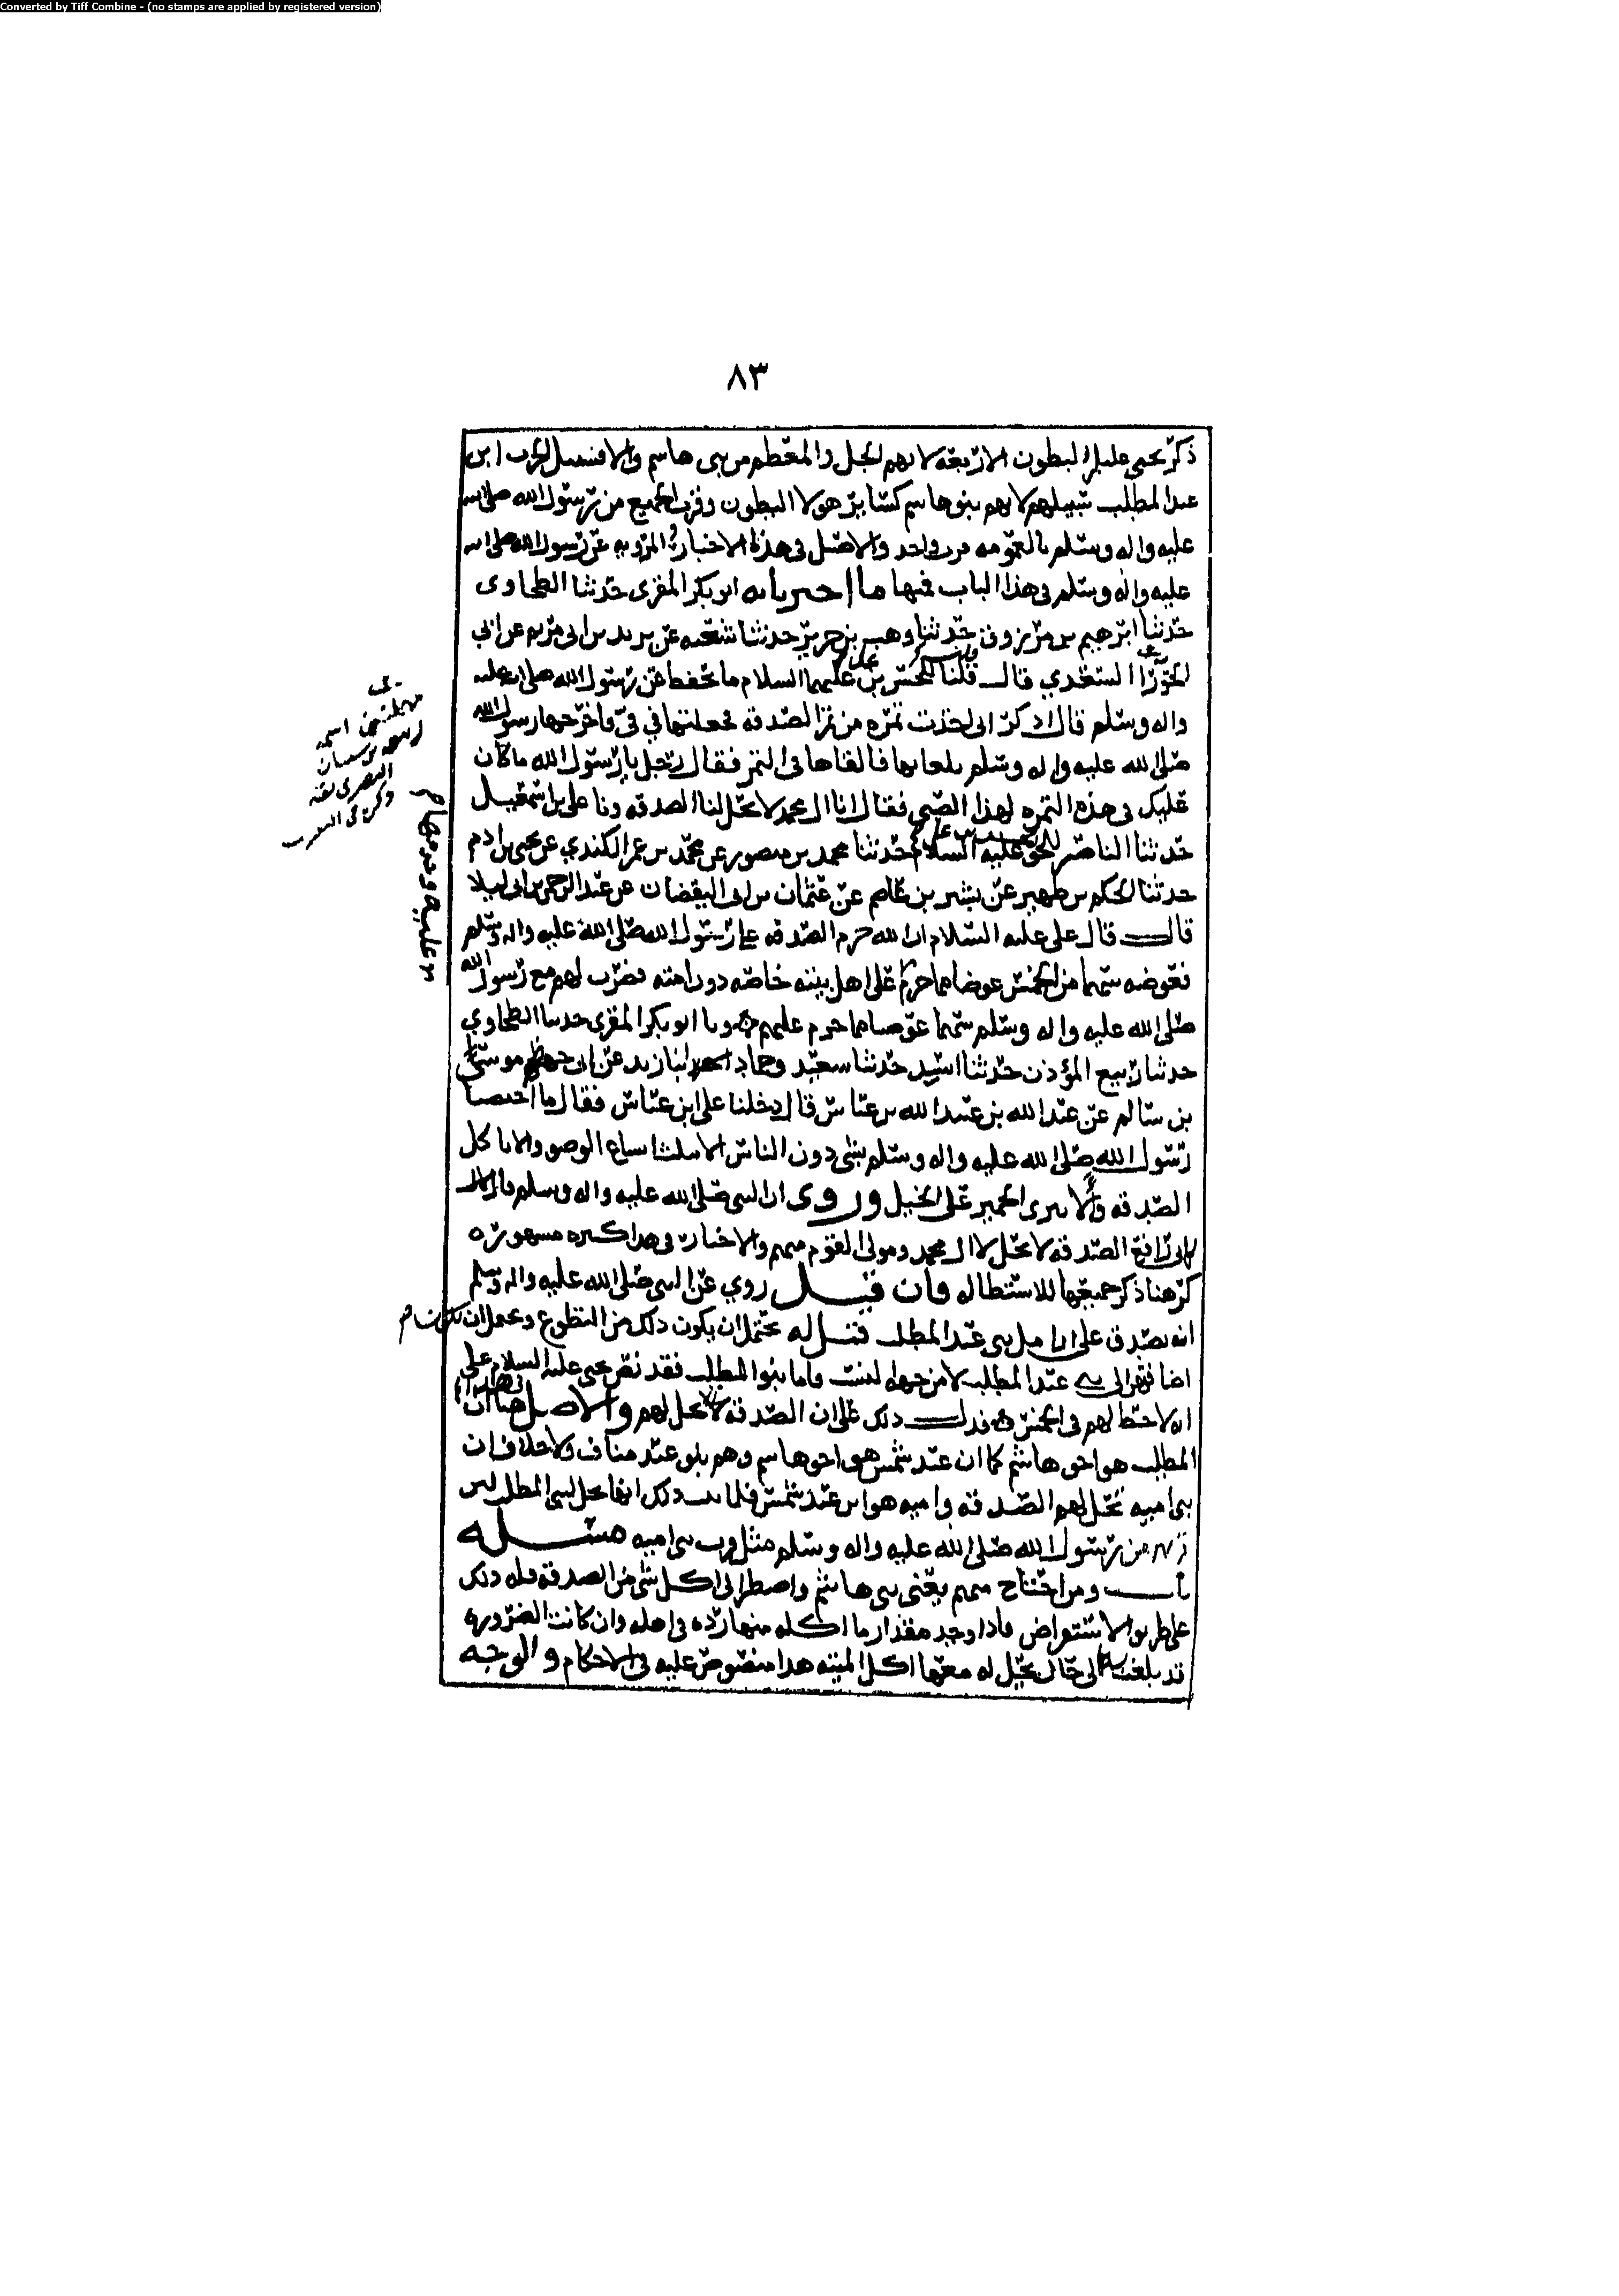 Converted by Tiff Combine - (no stamps are applied by registered version)
٨٣
ذكر يحيى عليلم البطون الاربعة لانهم الجل والمعظم من بني هاشم والا فسبيل الحرب ابن
عبد المطلب سبيلهم لانهم بنو هاشم كسائر هولا البطون وقرب الجميع من رسول الله صلى الله
عليه واله وسلم بالعمومه قرب واحد والاصل في هذا الاخبار المرويه عن رسول الله صلى الله
عليه واله وسلم في هذا الباب فمنها ما اخبرنا به ابو بكر المقري حدثنا الطحاوي
حدثنا ابرهيم بن مرزوق حدثنا وهب بن جرير حدثنا شعبه عن بريد بن ابي مريم عن ابي
الحورا السعدي قال قلنا للحسن بن علي عليهما السلام ما تحفظ عن رسول الله صلى الله عليه
واله وسلم قال اذكر اني اخذت تمره من تمر الصدقه فجعلتها في فيّ فاخرجها رسول الله
صلى الله عليه واله وسلم بلعابها فالقاها في التمر فقال رجل يا رسول الله ما كان
عليك في هذه التمره لهذا الصبي فقال انا ال محمد لا تحل لنا الصدقه ونا علي بن اسمعيل
حدثنا الناصر للحق عليه السلام حدثنا محمد بن منصور عن محمد بن عمر الكندي عن يحيى بن ادم
حدثنا الحكم بن ظهير عن بشير بن عاصم عن عثمان بن ابي اليقضان عن عبد الرحمن بن ابي ليلا
قال قال علي عليه السلام ان الله حرم الصدقه على رسول الله صلى الله عليه واله وسلم
فعوضه سهما من الخمس عوضا مما حرم على اهل بيته خاصه دون امته فضرب لهم مع رسول الله
صلى الله عليه واله وسلم سهما عوضا مما حرم عليهم ونا ابو بكر المقري حدثنا الطحاوي
حدثنا ربيع المؤذن حدثنا اسد حدثنا سعيد وحماد ابنا زيد عن ابي جهضم موسى
بن سالم عن عبد الله بن عبيد الله بن عباس قال دخلنا على ابن عباس فقال ما اختصنا
رسول الله صلى الله عليه واله وسلم بشي دون الناس الا بثلث اسباغ الوضو والا ناكل
الصدقه والا ننزي الحمير على الخيل وروي ان النبي صلى الله عليه واله وسلم قال
لابي رافع الصدقه لا تحل لال محمد ومولى القوم منهم والاخبار في هذا كثيره مشهوره
كرهنا ذكر جميعها للاستطاله فان قيل روي عن النبي صلى الله عليه واله وسلم
انه تصدق على ارامل بني عبد المطلب قيل له يحتمل ان يكون ذلك من التطوع ويحتمل ان تكن
اضافتهن الى بني عبد المطلب لا من جهه النسب واما بنوا المطلب فقد نص يحيى عليه السلام على
انه لا حظ لهم في الخمس فدل ذلك على ان الصدقه تحل لهم والاصل في هذا ان
المطلب هو اخو هاشم كما ان عبد شمس هو اخو هاشم وهم بنو عبد مناف ولا خلاف ان
بني اميه تحل لهم الصدقه واميه هو ابن عبد شمس فلما ثبت ذلك انها تحل لبني المطلب لان
قربهم من رسول الله صلى الله عليه واله وسلم مثل قرب بني اميه مسئله
قال ومن احتاج منهم يعني بني هاشم واضطر الى اكل شي من الصدقه فله ذلك
على طريق الاستقراض فاذا وجد مقدار ما اكله منها رده في اهله وان كانت الضروره
قد بلغت به الى حال يحل له معها اكل الميته هذا منصوص عليه في الاحكام والوجه
اسمه
ربيعه بن شيبان
البصري ثقه